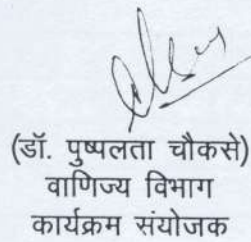 (डॉ. पुष्पलता चौकसे)
वाणिज्य विभाग
कार्यक्रम संयोजक